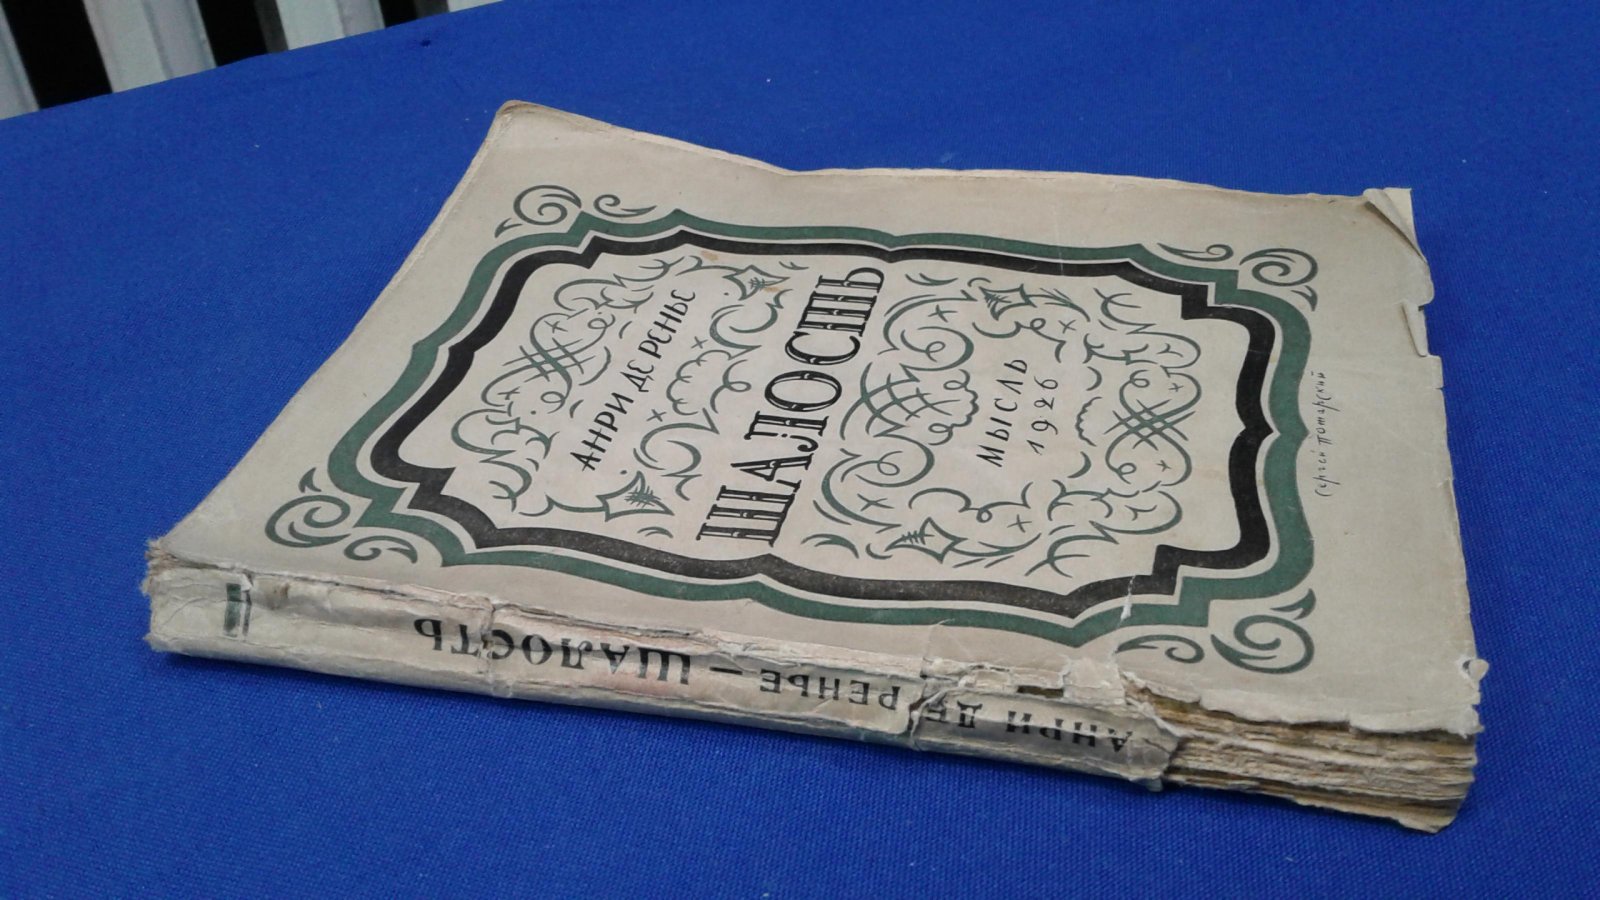 АНРИ ДЕ РЕНЬЕ
ШАЛОСТЬ
МЫСЛЬ
1926
Сергей Пожарский
АНРИ ДЕ РЕНЬЕ — ШАЛОСТЬ